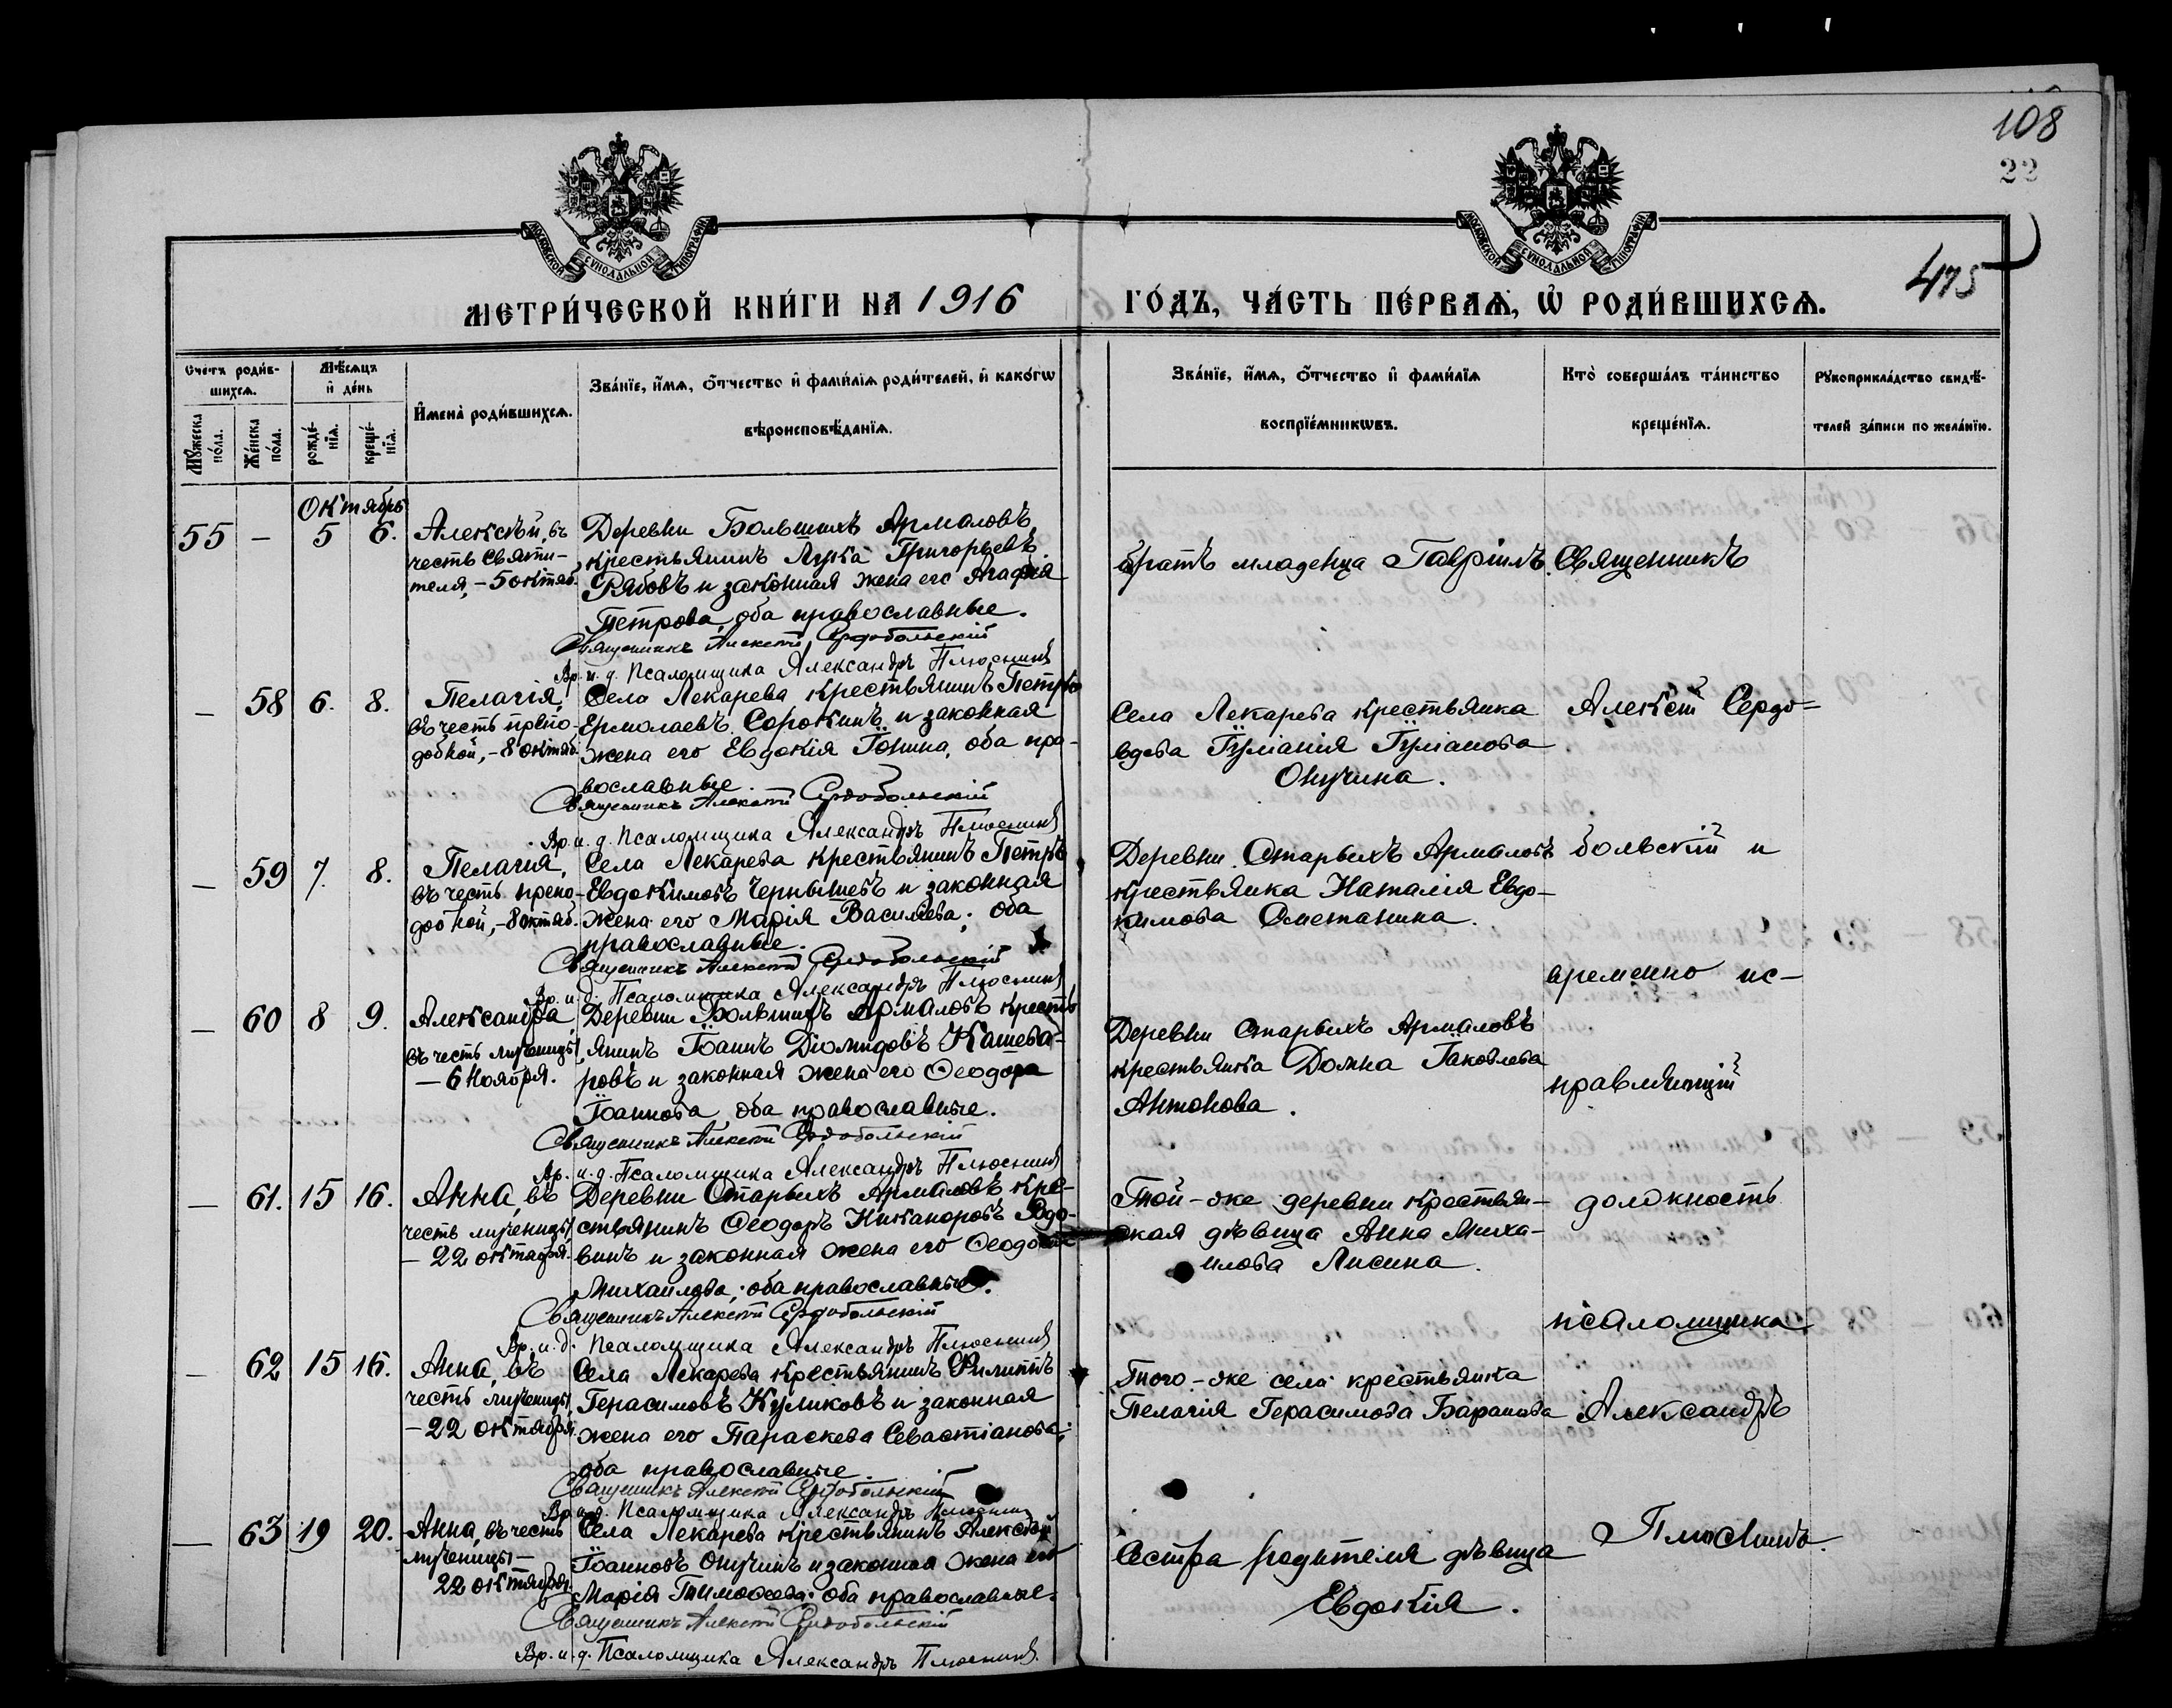 108
22
475
МОСКОВСКОЙ СѴНОДАЛЬНОЙ ТИПОГРАФІИ
МОСКОВСКОЙ СѴНОДАЛЬНОЙ ТИПОГРАФІИ
МЕТРИ́ЧЕСКОЙ КНИ́ГИ НА 1916 ГО́ДЪ, ЧА́СТЬ ПЕ́РВАѦ, Ѡ҆ РОДИ́ВШИХСѦ.
Сче́тъ роди́в-
шихсѧ.
Мꙋ́жеска
по́ла.
Же́нска
по́ла.
Мѣ́сѧцъ
и҆ де́нь
рожде́-
нїѧ.
креще́-
нїѧ.
И҆мена̀ роди́вшихсѧ.
Зва́нїе, и҆́мѧ, ѻ҆́тчество и҆ фами́лїѧ роди́телей, и҆ како́гѡ
вѣроисповѣ́данїѧ.
Зва́нїе, и҆́мѧ, ѻ҆́тчество и҆ фами́лїѧ
воспрїе́мникѡвъ.
Кто̀ соверша́лъ та́инство
креще́нїѧ.
Рꙋкоприкла́дство свидѣ́-
телей за́писи по жела́нїю.
Октябрь
55 – 5 6.
Алексѣй, въ
честь Святи-
теля, – 5 октяб.
Деревни Большихъ Армаловъ,
крестьянинъ Лука Григорьевъ
Рябовъ и законная жена его Агафія
Петрова, оба православные.
Священникъ Алексій Сердобольскій
Вр. и. д. Псаломщика Александръ Плюснинъ
братъ младенца Гавріилъ.
Священникъ
– 58 6. 8.
Пелагія,
въ честь препо-
добной, – 8 октяб.
Села Лекарева крестьянинъ Петръ
Ермолаевъ Сорокинъ и законная
жена его Евдокія Іонина, оба пра-
вославные.
Священникъ Алексій Сердобольскій
Вр. и. д. Псаломщика Александръ Плюснинъ
Села Лекарева крестьянка
вдова Іуліанія Іуліанова
Онучина.
Алексій Сердо=
– 59 7. 8.
Пелагія,
въ честь препо-
добной, – 8 октяб.
Села Лекарева крестьянинъ Петръ
Евдокимовъ Чернышевъ и законная
жена его Марія Васильева; оба
православные.
Священникъ Алексій Сердобольскій
Вр. и. д. Псаломщика Александръ Плюснинъ
Деревни Старыхъ Армаловъ
крестьянка Наталія Евдо-
кимова Сметанина.
больскій и
временно ис-
– 60 8 9.
Александра
въ честь мученицы,
– 6 Ноября.
Деревни Большихъ Армаловъ кресть
янинъ Іоаннъ Діомидовъ Кашева-
ровъ и законная жена его Ѳеодора
Іоаннова, оба православные.
Священникъ Алексій Сердобольскій
Вр. и. д. Псаломщика Александръ Плюснинъ
Деревни Старыхъ Армаловъ
крестьянка Домна Іаковлева
Антонова.
правляющій
– 61. 15 16.
Анна, въ
честь мученицы,
– 22 октября.
Деревни Старыхъ Армаловъ кре-
стьянинъ Ѳеодоръ Никаноровъ
винъ и законная жена его
Михаилова; оба православные.
Священникъ Алексій Сердобольскій
Вр. и. д. Псаломщика Александръ Плюснинъ
Той-же деревни крестьян-
ская дѣвица Анна Миха-
илова Лисина.
должность
псаломщика
– 62 15 16.
Анна, въ
честь мученицы,
– 22 октября.
Села Лекарева крестьянинъ Филиппъ
Герасимовъ Куликовъ и законная
жена его Параскева Севастіанова;
оба православные.
Священникъ Алексій Сердобольскій
Вр. и. д. Псаломщика Александръ Плюснинъ
Того-же села крестьянка
Пелагія Герасимова Баранова
Александръ
– 63 19 20.
Анна, въ честь
мученицы –
22 октября.
Села Лекарева крестьянинъ Алексѣй
Іоанновъ Онучинъ и законная жена его
Марія Тимоѳеева; оба православные.
Священникъ Алексій Сердобольскій
Вр. и. д. Псаломщика Александръ Плюснинъ
Сестра родителя дѣвица
Евдокія.
Плюснинъ.